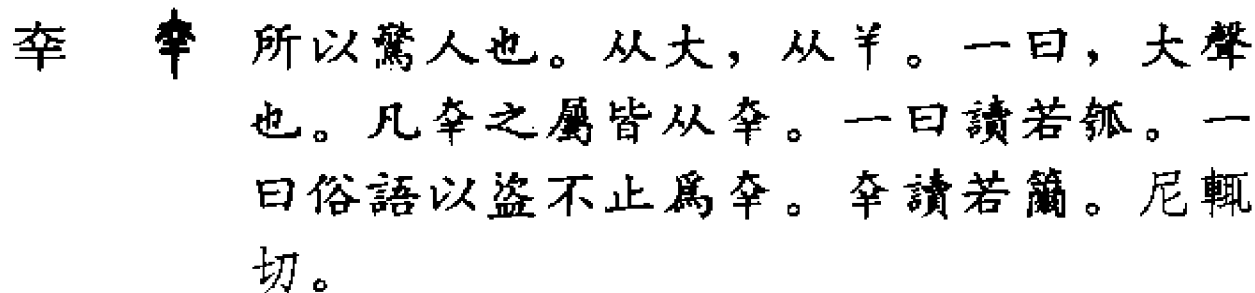 㚔 㚔 所以驚人也。从大，从羊。一曰，大聲
也。凡㚔之屬皆从㚔。一曰讀若瓠。一
曰俗語以盜不止爲㚔。㚔讀若籋。尼輒
切。